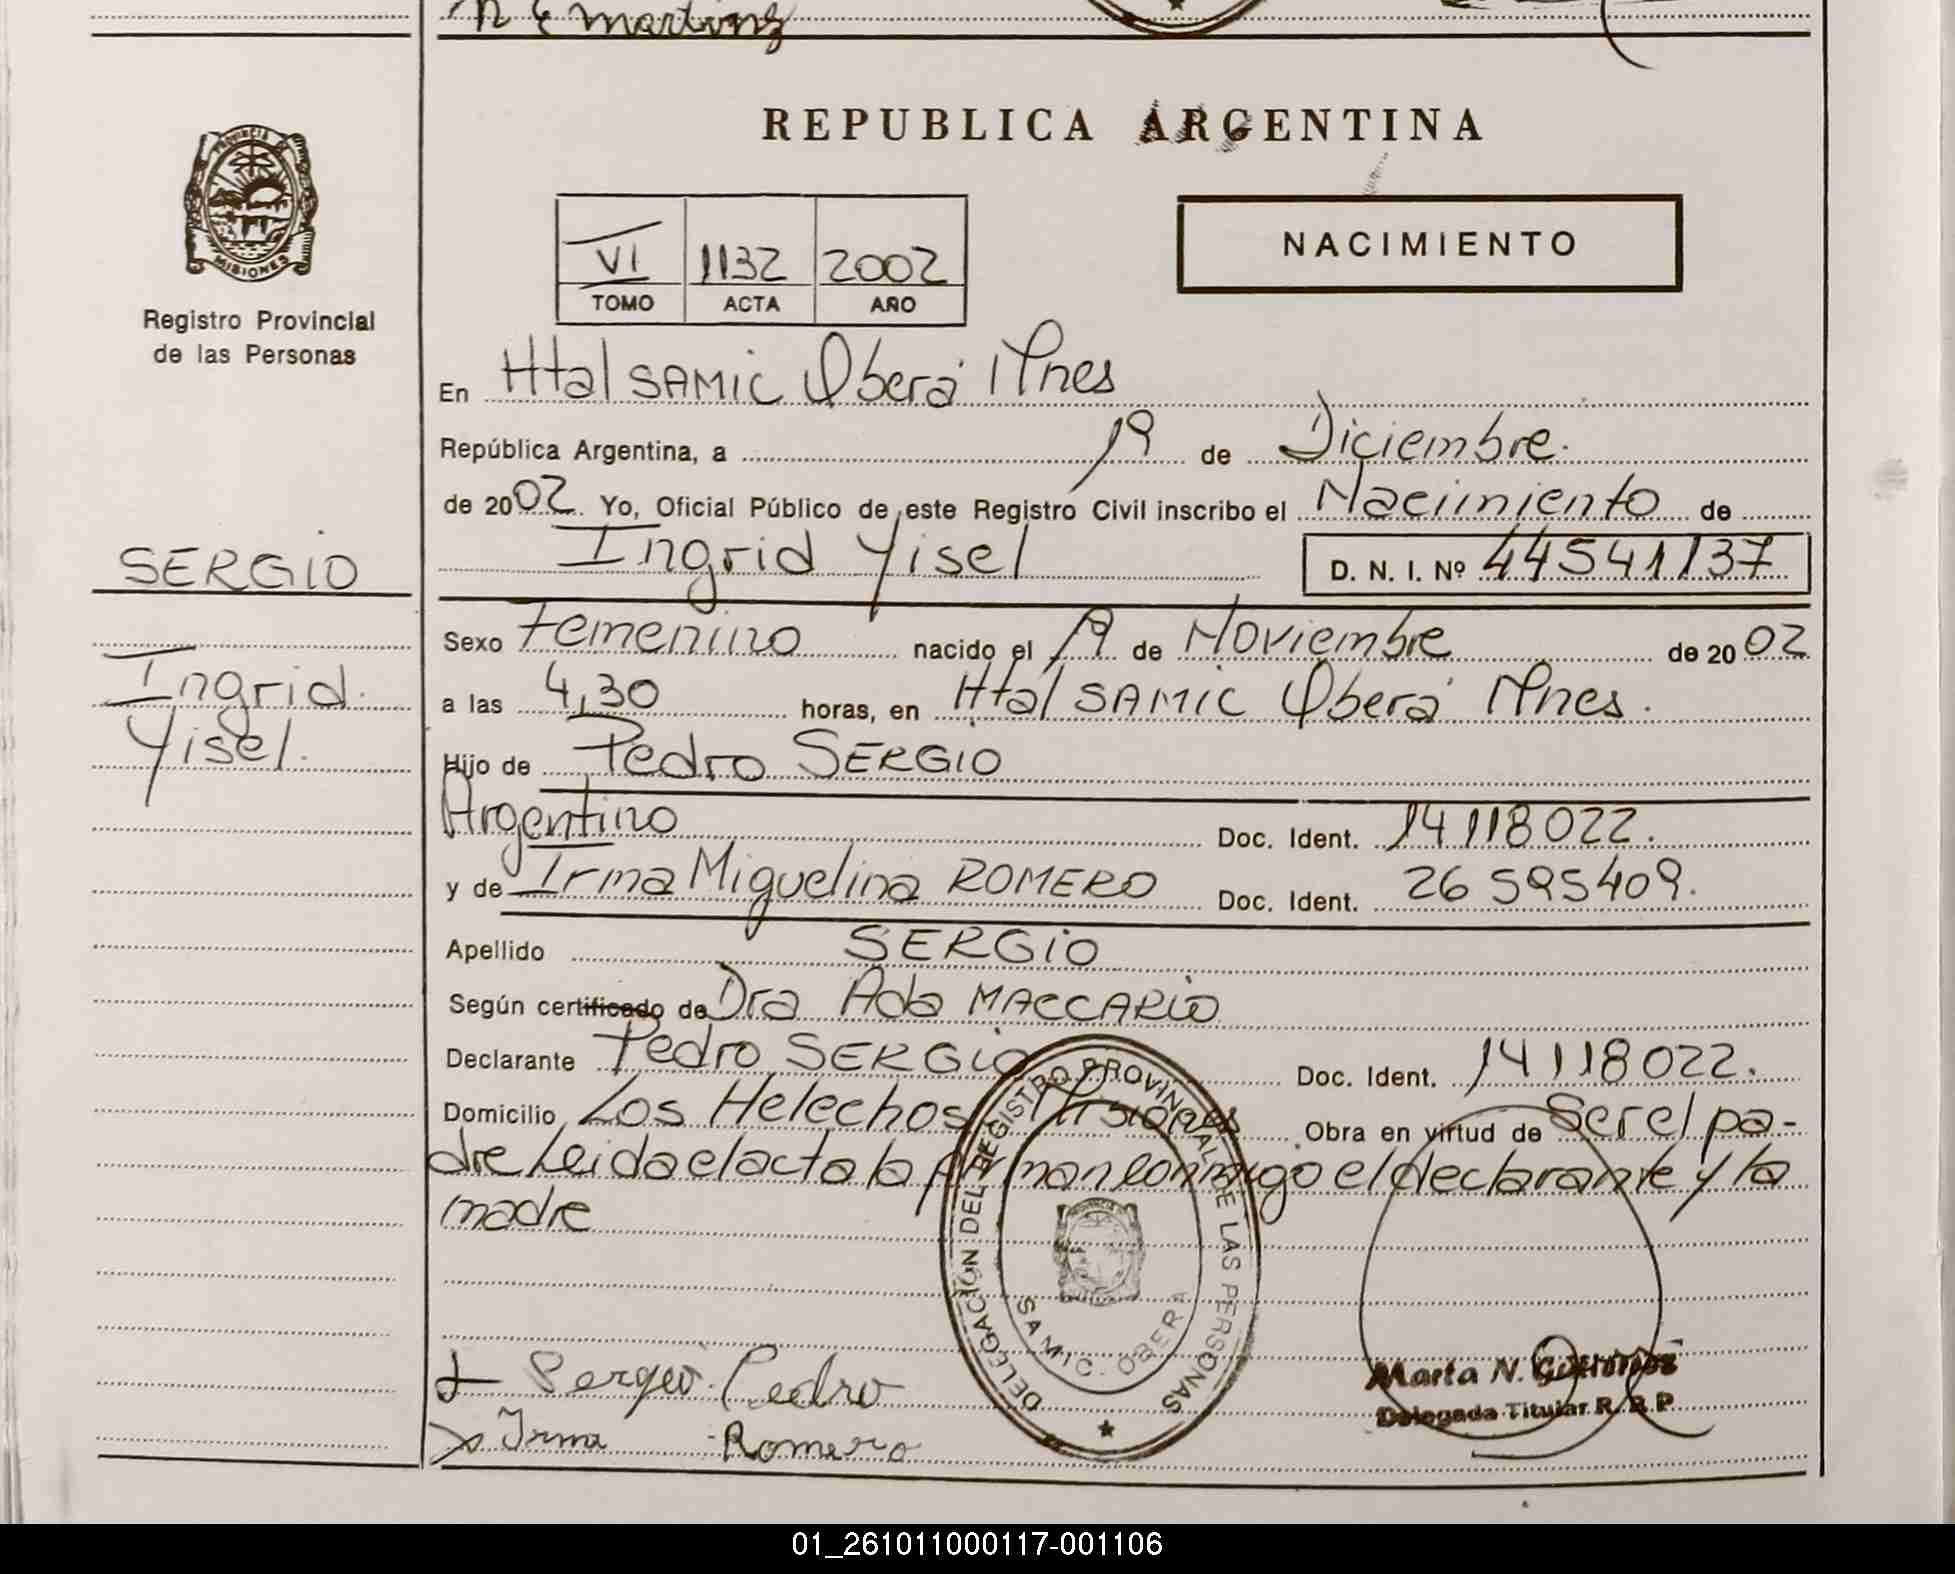 N E Martinz
REPUBLICA ARGENTINA
PROVINCIA DE
MISIONES
Registro Provincial
de las Personas
VI 1132 2002
TOMO ACTA AÑO
NACIMIENTO
En Htal SAMIC Oberá Mnes
República Argentina, a 19 de Diciembre.
de 2002. Yo, Oficial Público de este Registro Civil inscribo el Nacimiento de
SERGIO
Ingrid Yisel D. N. I. Nº 44541137
Ingrid
Yisel.
Sexo Femenino nacido el 19 de Noviembre de 2002
a las 4,30 horas, en Htal SAMIC Oberá Mnes.
Hijo de Pedro SERGIO
Argentino Doc. Ident. 14118022.
y de Irma Miguelina ROMERO Doc. Ident. 26595409.
Apellido SERGIO
Según certificado de Dra Ada MACCARIO
Declarante Pedro SERGIO Doc. Ident. 14118022.
Domicilio Los Helechos Misiones Obra en virtud de Ser el pa-
dre Leida el acta la firman conmigo el declarante y la
madre
DELEGACIÓN DEL REGISTRO PROVINCIAL DE LAS PERSONAS
SAMIC. OBERA
Sergio Pedro
Irma Romero
Marta N.
Delegada Titular R. P.
01_261011000117-001106